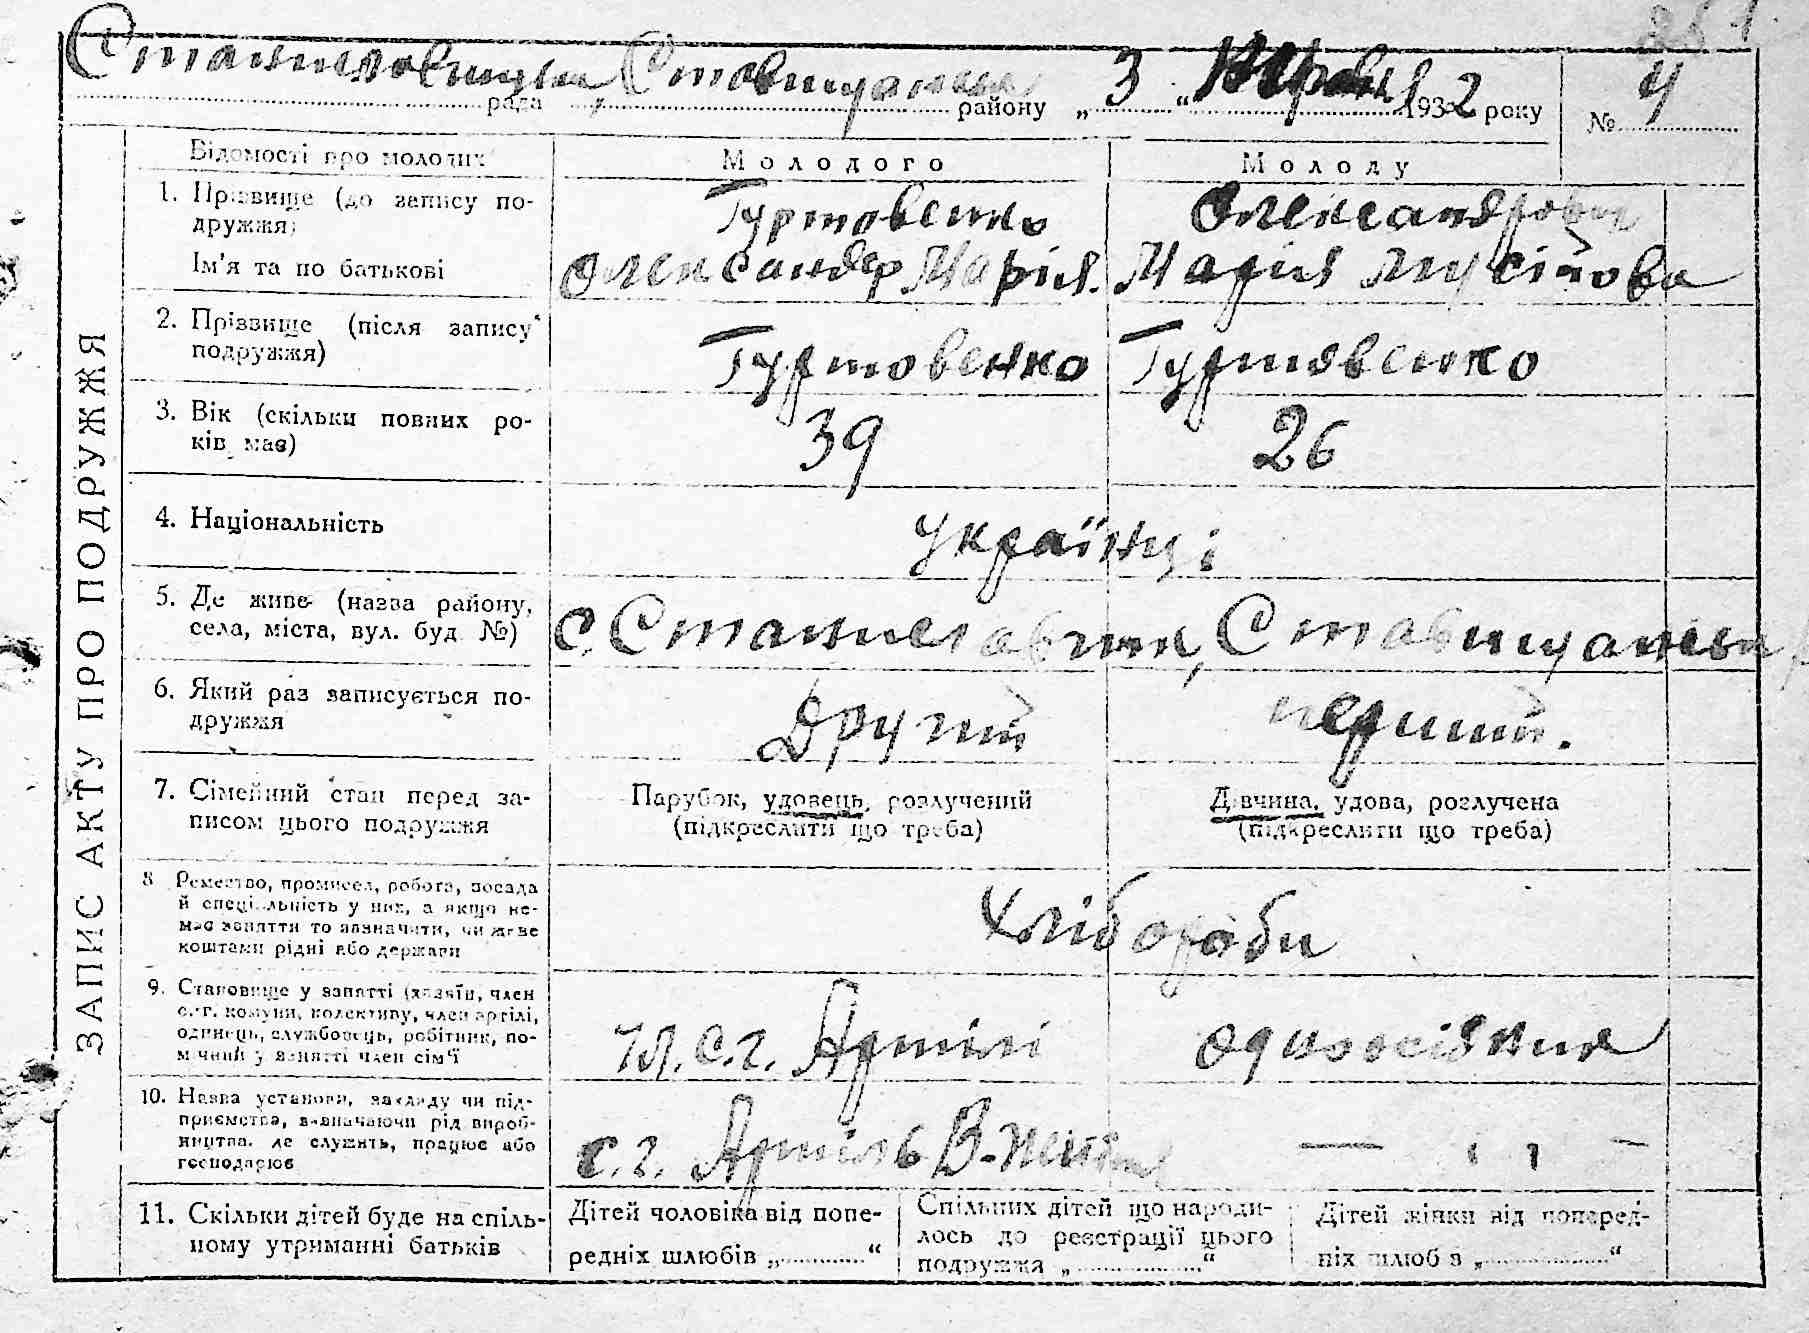 351.
Станиславчицька рада, Ставищанськ району „ 3 “ 1932 року № 4
ЗАПИС АКТУ ПРО ПОДРУЖЖЯ
Відомості про молодих Молодого Молоду
1. Прізвище (до запису по-
дружжя) Гуртовенко Олександрович
Ім'я та по батькові Олександр Марія. Марія Мусійова
2. Прізвище (після запису
подружжя) Гуртовенко Гуртовенко
3. Вік (скільки повних ро-
ків має) 39 26
4. Національність Українці
5. Де живе (назва району,
села, міста, вул. буд №) с. Ставищанськ
6. Який раз записується по-
дружжя Другий перший.
7. Сімейний стан перед за-
писом цього подружжя
Парубок, удовець, розлучений
(підкреслити що треба)
Дівчина, удова, розлучена
(підкреслити що треба)
8 Ремество, промисел, робота, посада
й спеціяльність у них, а якщо не-
має заняття то зазначити, чи живе
коштами рідні або держави Хлібороби
9. Становище у занятті (хазяїн, член
с.-г. комуни, колективу, член артілі,
одинець, службовець, робітник, по-
мічний у занятті член сім'ї чл. с.г. Артілі одноосібниця
10. Назва установи, закладу чи під-
приємства, визначаючи рід вироб-
ництва, де служить, працює або
господарює с.г. Артіль — ı ı –
11. Скільки дітей буде на спіль-
ному утриманні батьків
Дітей чоловіка від попе-
редніх шлюбів „ “
Спільних дітей що народи-
лось до реєстрації цього
подружжа „ “
Дітей жінки від поперед-
ніх шлюбів „ “